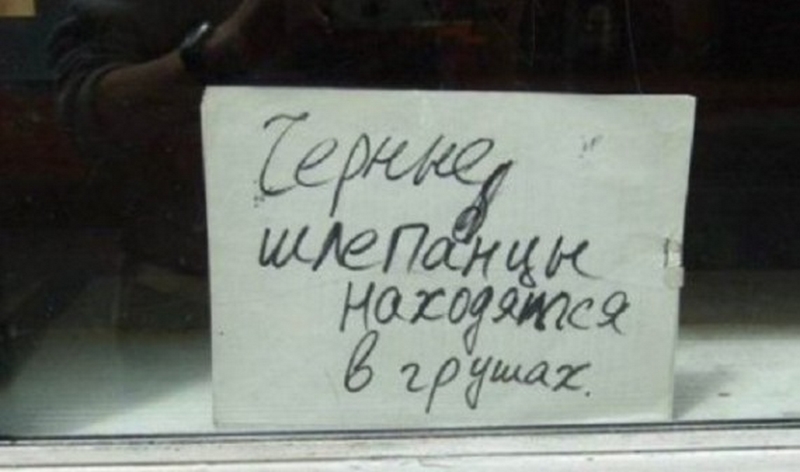 Черные
шлепанцы
находятся
в грушах.